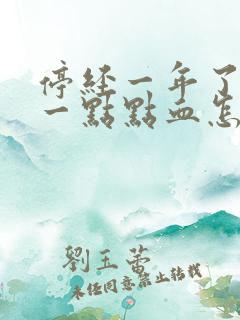 停經一年了
一點點血怎
劉玉蕾
未经同意禁止转载